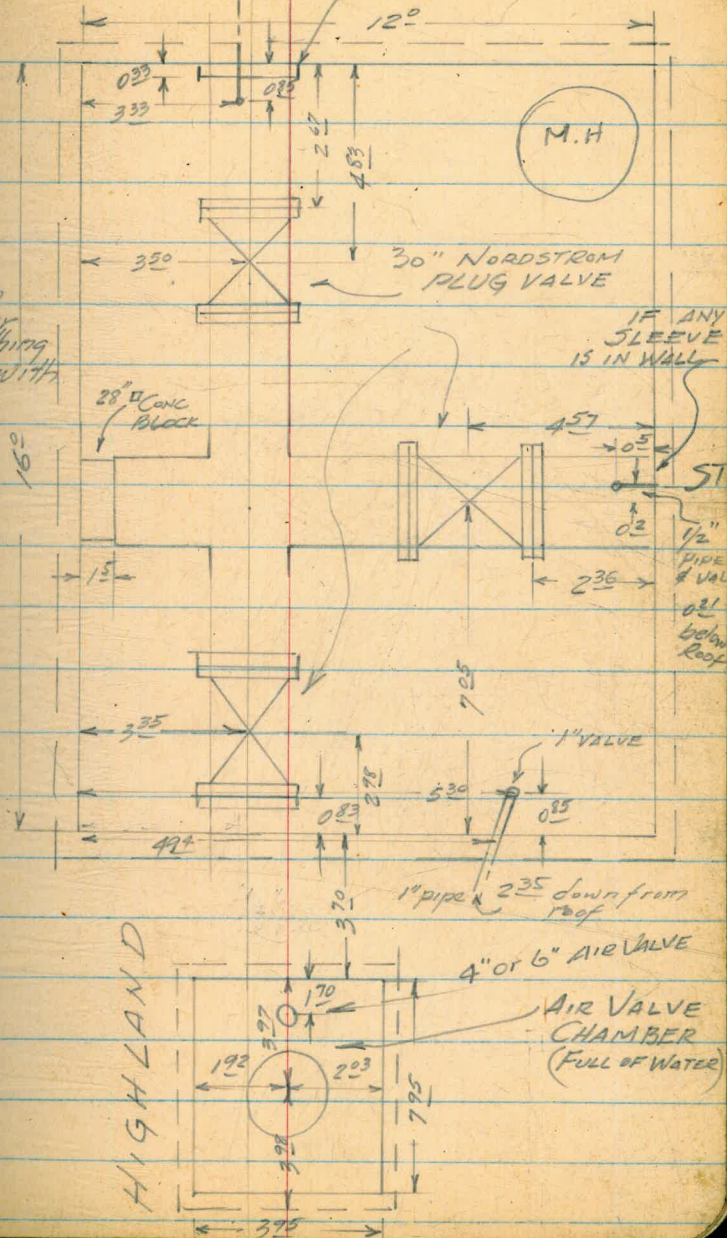 12⁰
0³³
3³³
0⁸⁵
2⁶⁷
4⁸³
M.H
3⁵⁰
30" NORDSTROM
PLUG VALVE
IF ANY
SLEEVE
IS IN WALL
hing
with
28" □ CONC
BLOCK
16⁰
4⁵⁷
0⁵
ST
0²
1/2"
PIPE
& VAL
0²¹
below
Roof
1⁵
2³⁶
7⁰⁵
3³⁵
2⁹⁸
1" VALVE
5³⁰
0⁸³
0⁸⁵
4⁹⁴
1" pipe 2³⁵ down from
roof
3⁷⁰
HIGHLAND
4" or 6" AIR VALVE
1⁷⁰
3⁹⁷
AIR VALVE
CHAMBER
(FULL OF WATER)
1⁹²
2⁰³
7⁹⁵
3⁹⁸
3⁹⁵